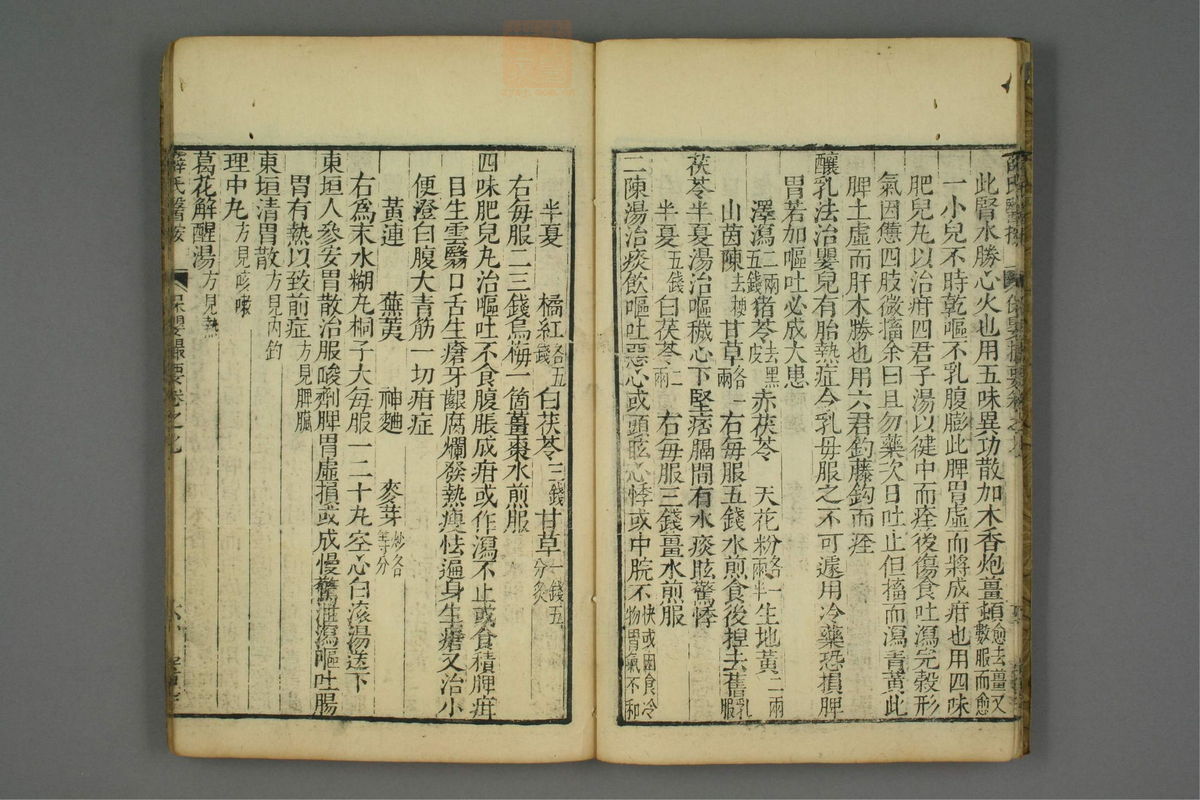 此腎水勝心火也用五味異功散加木香炮薑頓愈去薑又數服而愈
一小兒不時乾嘔不乳腹膨此脾胃虛而將成疳也用四味
肥兒丸以治疳四君子湯以健中而痊後傷食吐瀉完穀形
氣因憊四肢微搐余曰且勿藥次日吐止但搐而瀉青黃此
脾土虛而肝木勝也用六君鈎藤鈎而痊
釀乳法治嬰兒有胎熱症令乳母服之不可遽用冷藥恐損脾
胃若加嘔吐必成大患
澤瀉二兩五錢 猪苓去黑皮 赤茯苓 天花粉各一兩半 生地黃二兩
山茵陳去梗 甘草各一兩 右每服五錢水煎食後捏去舊乳服
茯苓半夏湯治嘔穢心下堅痞膈間有水痰眩驚悸
半夏五錢 白茯苓二兩 右每服三錢薑水煎服
二陳湯治痰飲嘔吐惡心或頭眩心悸或中脘不快或因食冷物胃氣不和
半夏 橘紅各五錢 白茯苓三錢 甘草一錢五分炙
右每服二三錢烏梅一箇薑棗水煎服
四味肥兒丸治嘔吐不食腹脹成疳或作瀉不止或食積脾疳
目生雲翳口舌生瘡牙齦腐爛發熱瘦怯遍身生瘡又治小
便澄白腹大青筋一切疳症
黃連 蕪荑 神麯 麥芽炒各等分
右為末水糊丸桐子大每服一二十丸空心白滚湯送下
東垣人參安胃散治服峻劑脾胃虛損或成慢驚泄瀉嘔吐腸
胃有熱以致前症方見脾臟
東垣清胃散方見內釣
理中丸方見咳嗽
葛花解酲湯方見熱
薛氏醫按 保嬰撮要卷之七